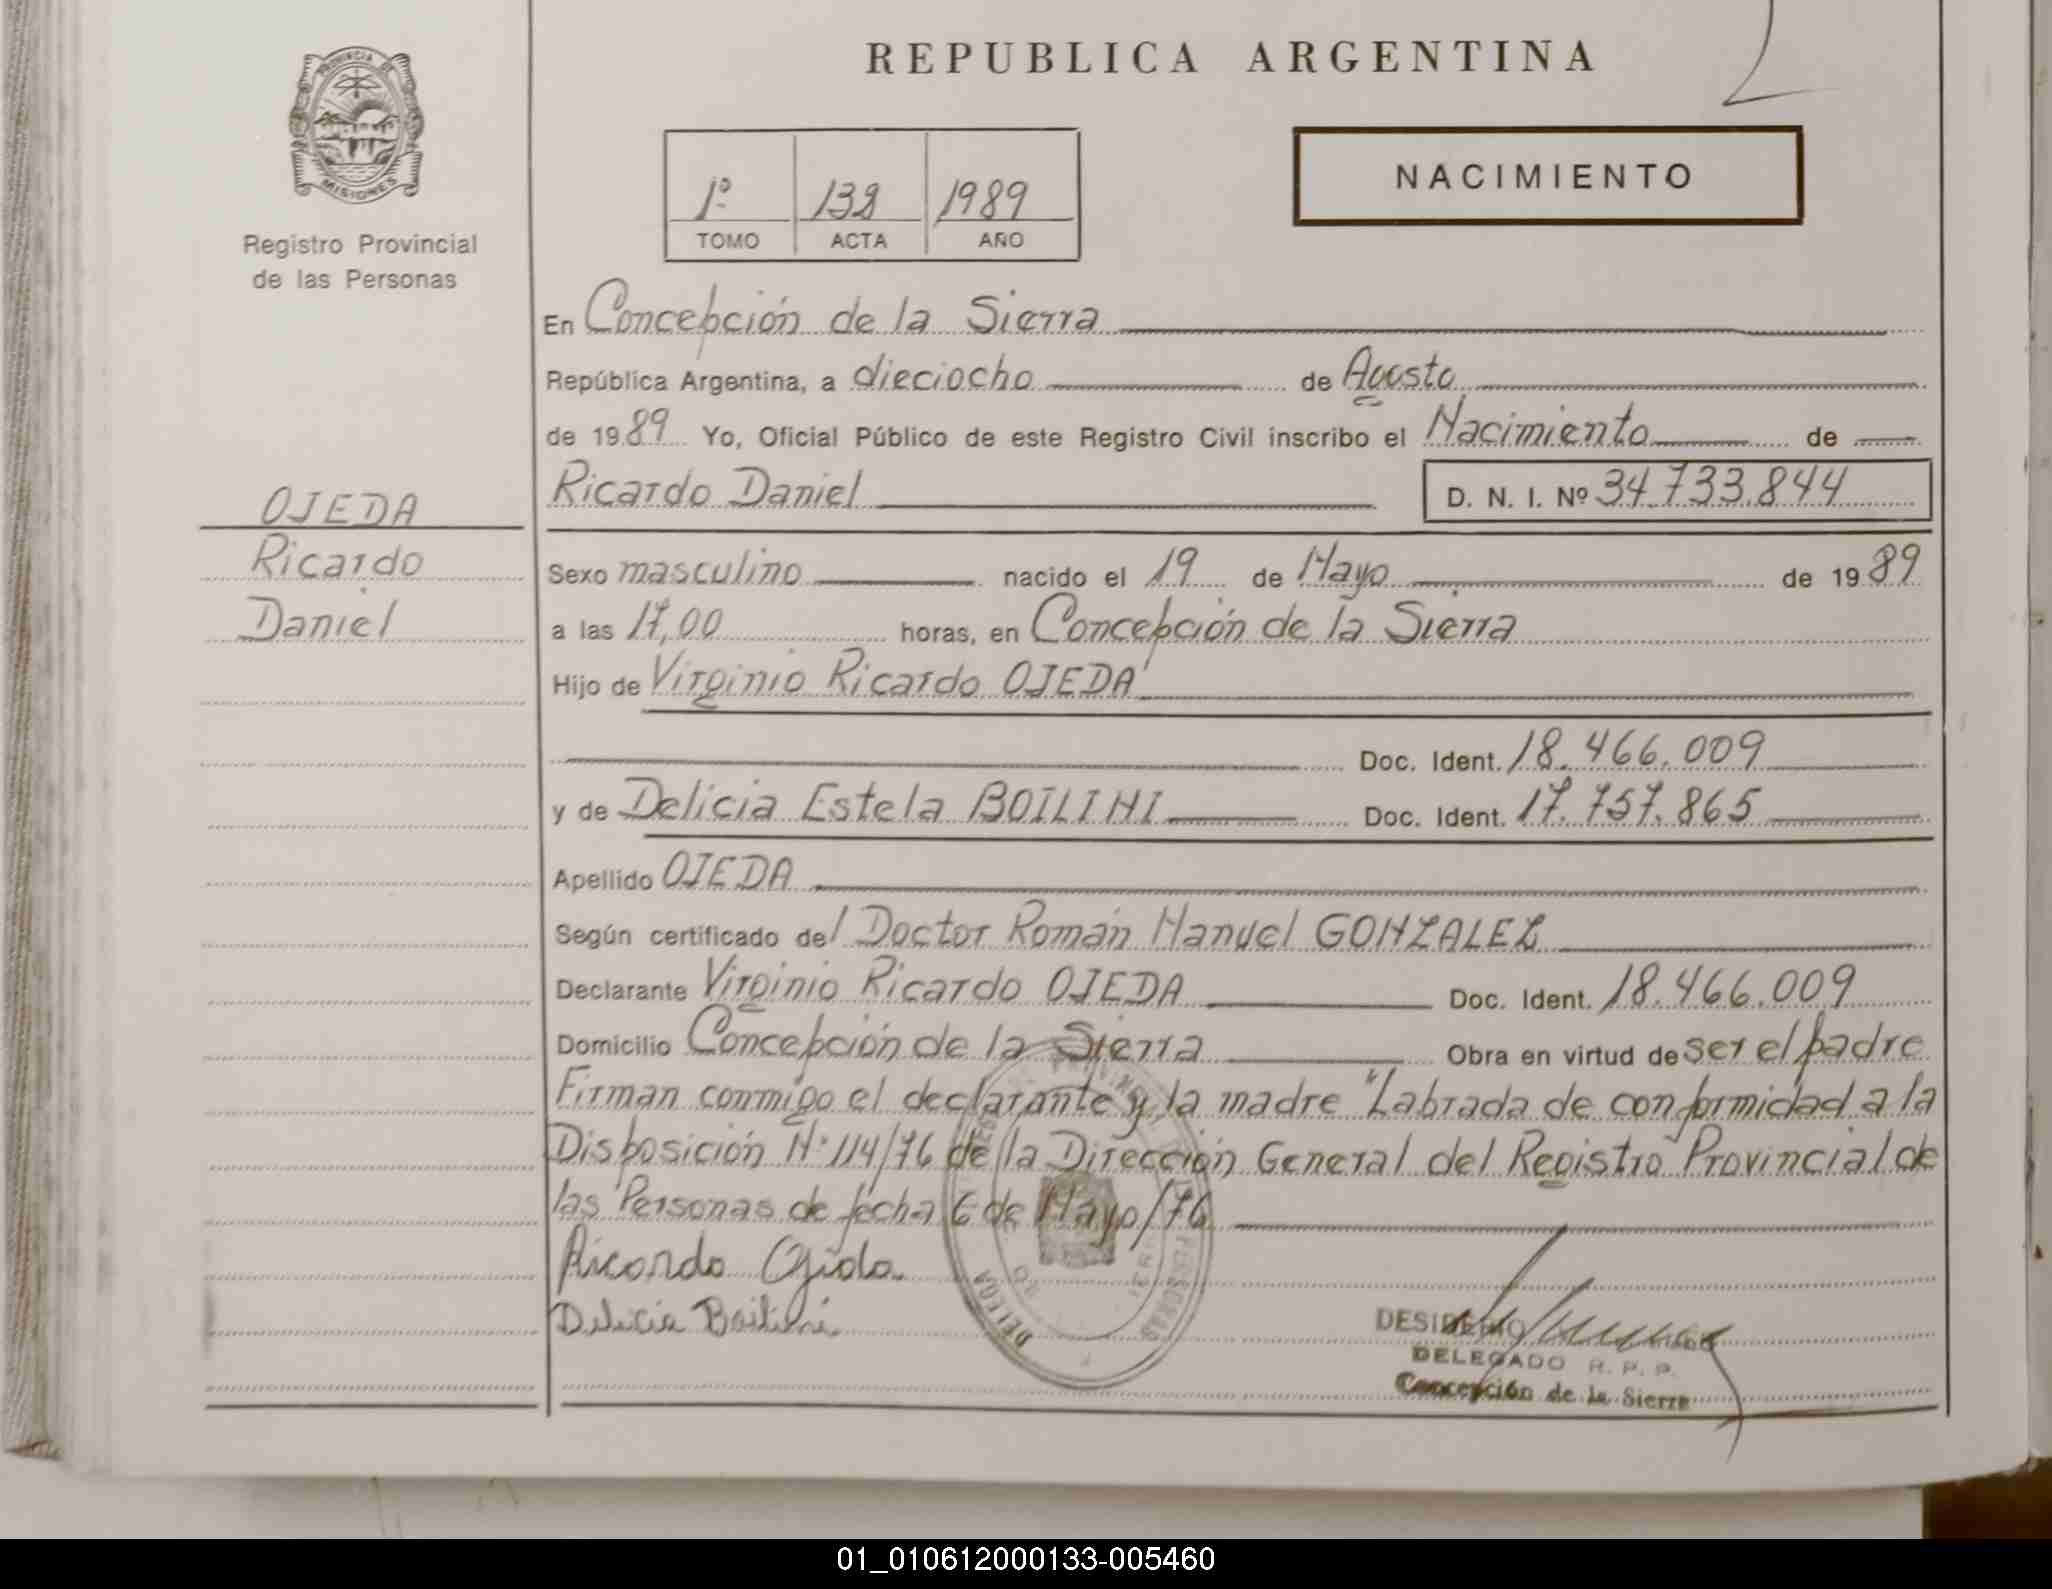 REPUBLICA ARGENTINA
PROVINCIA DE
MISIONES
Registro Provincial
de las Personas
1º 138 1989
TOMO ACTA AÑO
NACIMIENTO
En Concepción de la Sierra
República Argentina, a dieciocho de Agosto
de 1989 Yo, Oficial Público de este Registro Civil inscribo el Nacimiento de
Ricardo Daniel D. N. I. Nº 34.733.844
OJEDA
Ricardo
Daniel
Sexo masculino nacido el 19 de Mayo de 1989
a las 17,00 horas, en Concepción de la Sierra
Hijo de Virginio Ricardo OJEDA
Doc. Ident. 18.466.009
y de Delicia Estela BOILINI Doc. Ident. 17.757.865
Apellido OJEDA
Según certificado del Doctor Román Manuel GONZALEZ
Declarante Virginio Ricardo OJEDA Doc. Ident. 18.466.009
Domicilio Concepción de la Sierra Obra en virtud de ser el padre
Firman conmigo el declarante y la madre "Labrada de conformidad a la
Disposición Nº 114/76 de la Dirección General del Registro Provincial de
las Personas de fecha 6 de Mayo/76
Ricardo Ojeda
Delicia Boilini
DESIDERIO
DELEGADO R. P. P.
Concepción de la Sierra
01_010612000133-005460